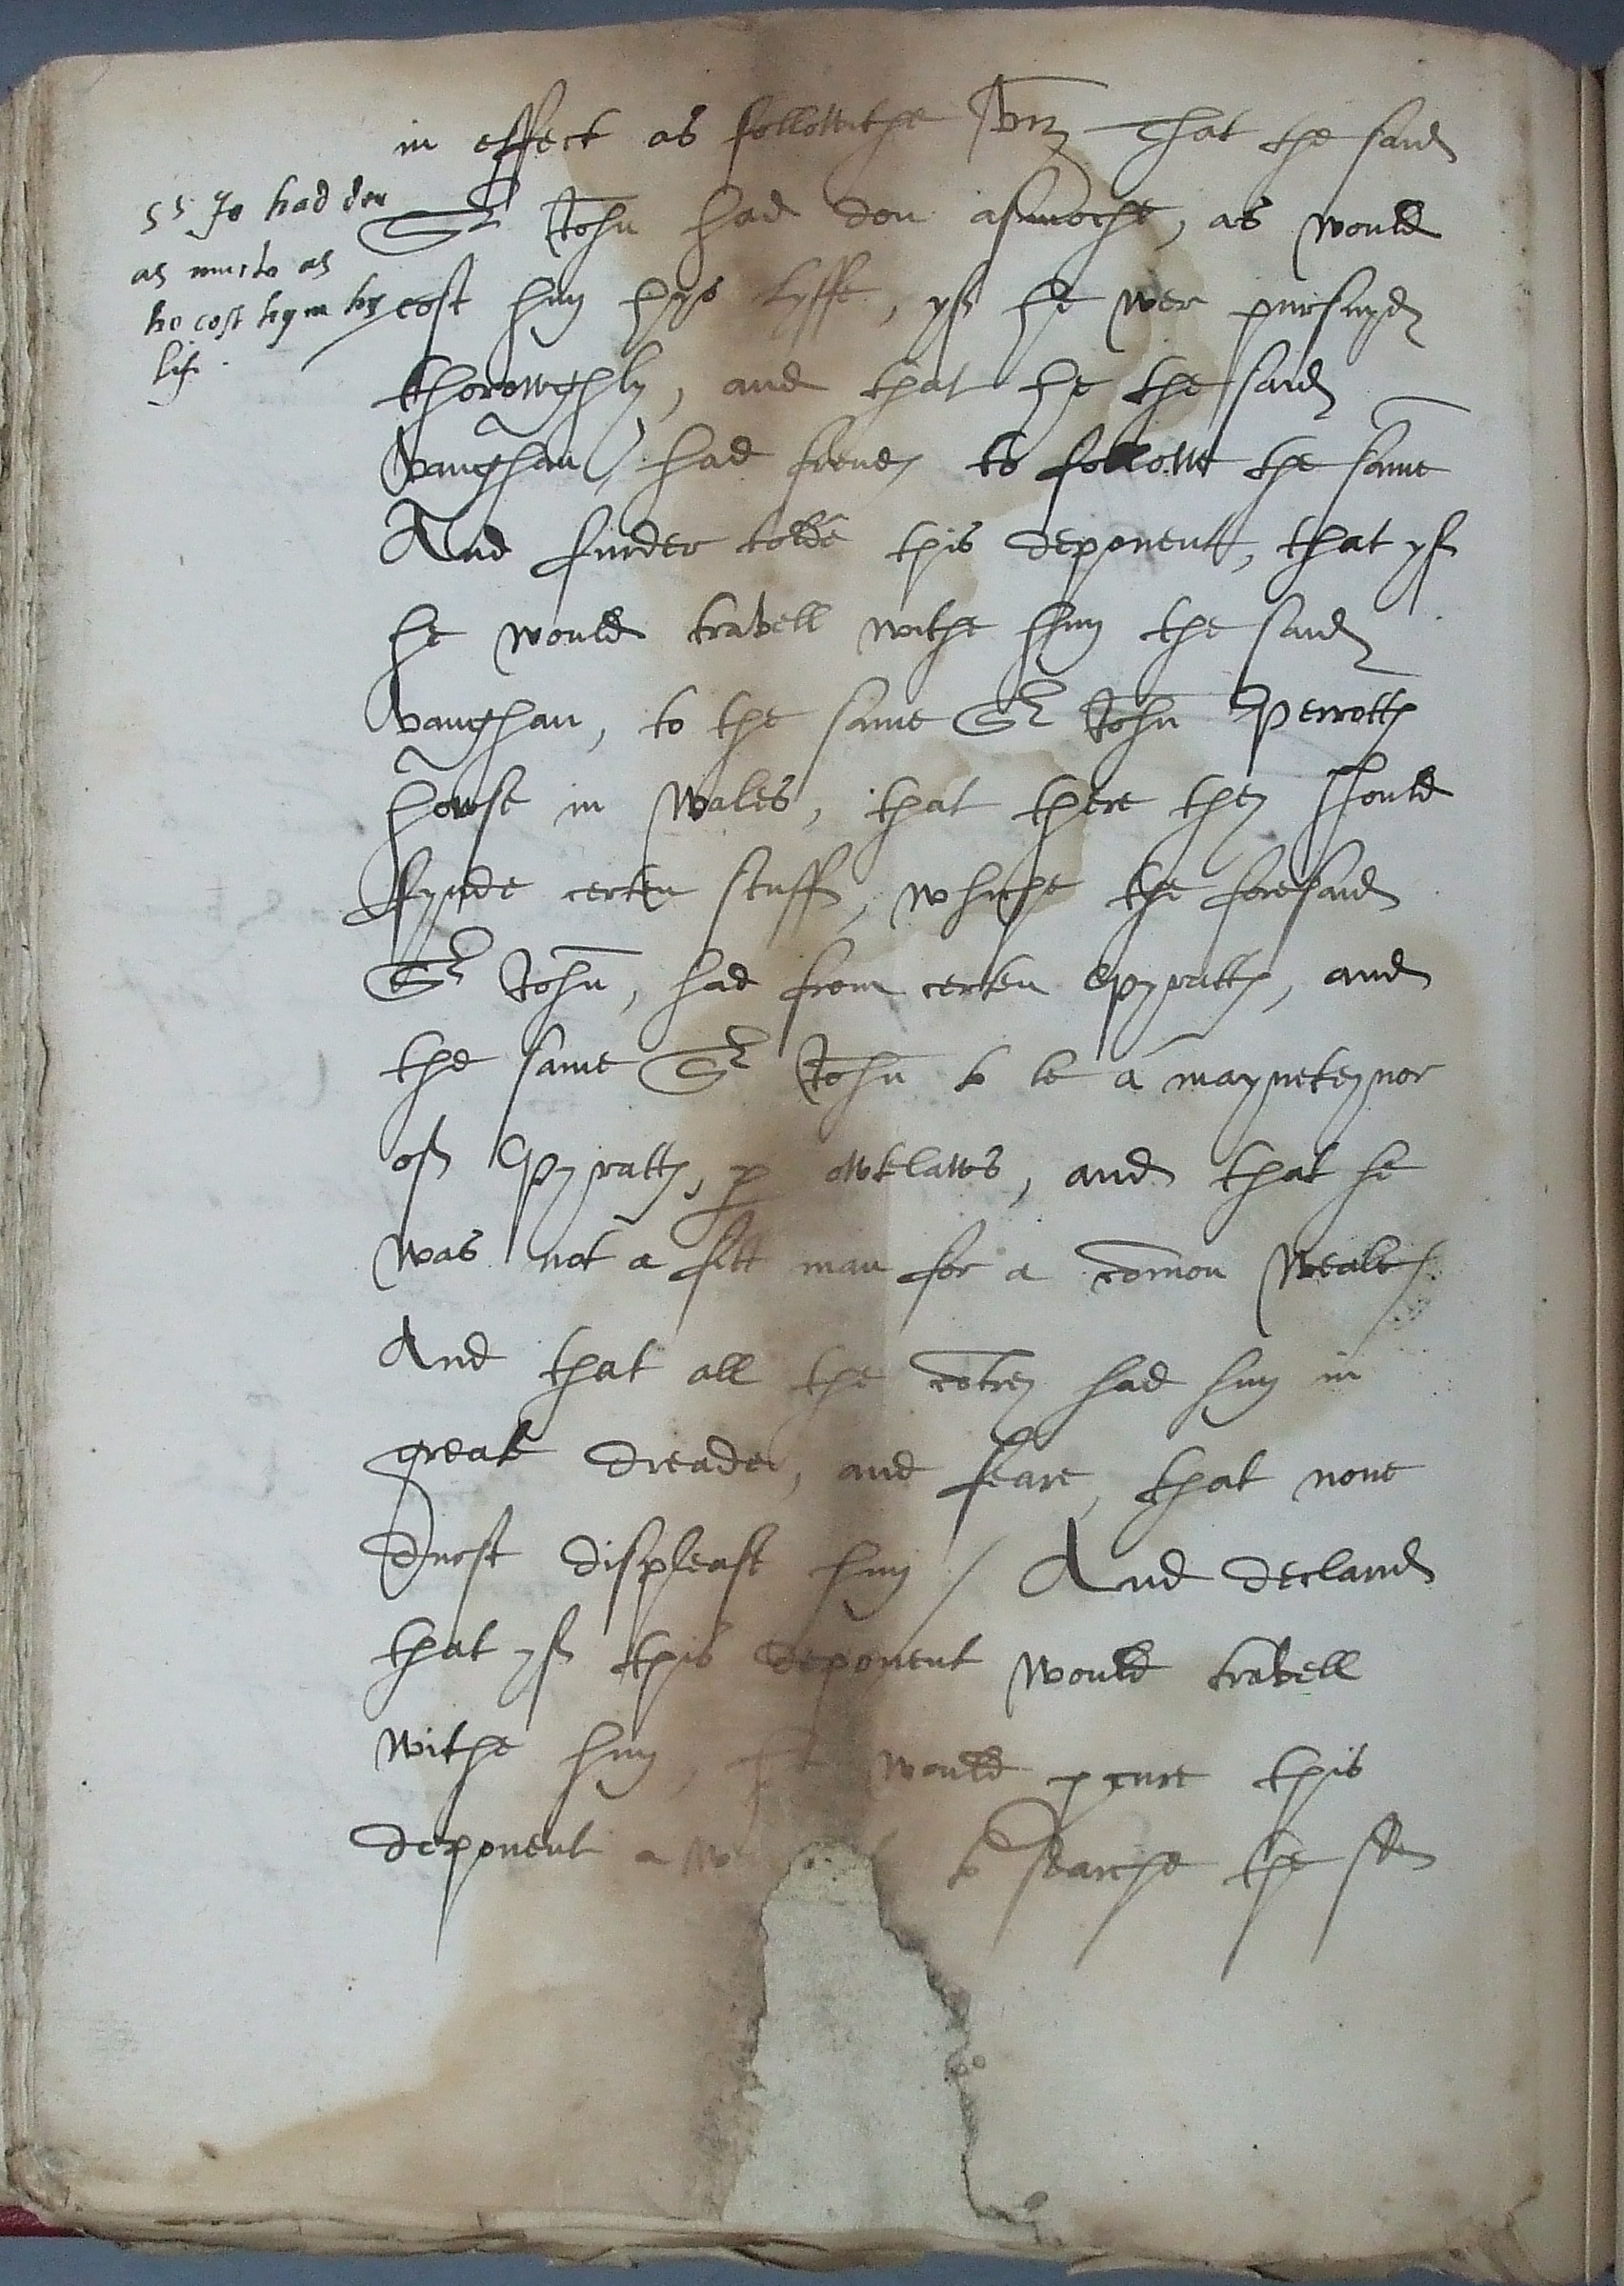 in effect as followithe viz That the said
Sr John had don asmoche, as would
cost hym hys lyffe, yf he wer pursuyd
thorowghly, and that he the said
Vaughan, had frends to followe the same
And furder tolde this deponent, that yf
he would travell withe hym the said
Vaughan, to the same Sr John Perrotts
howse in Wales, that there they should
fynde certen stuff, whiche the foresaid
Sr John, had from certen Pyratts, and
the same Sr John to be a mayneteynor
of Pyratts, owtlaws, and that he
was not a fitt man for a comon Weale /
And that all the cotrey had hym in
great dreade, and feare, that none
durst displease hym / And declared
that yf this deponent would travell
withe hym, he would pcure this
deponent a to searche the sd
Sr Jo had don
as much as
hym hys
life.